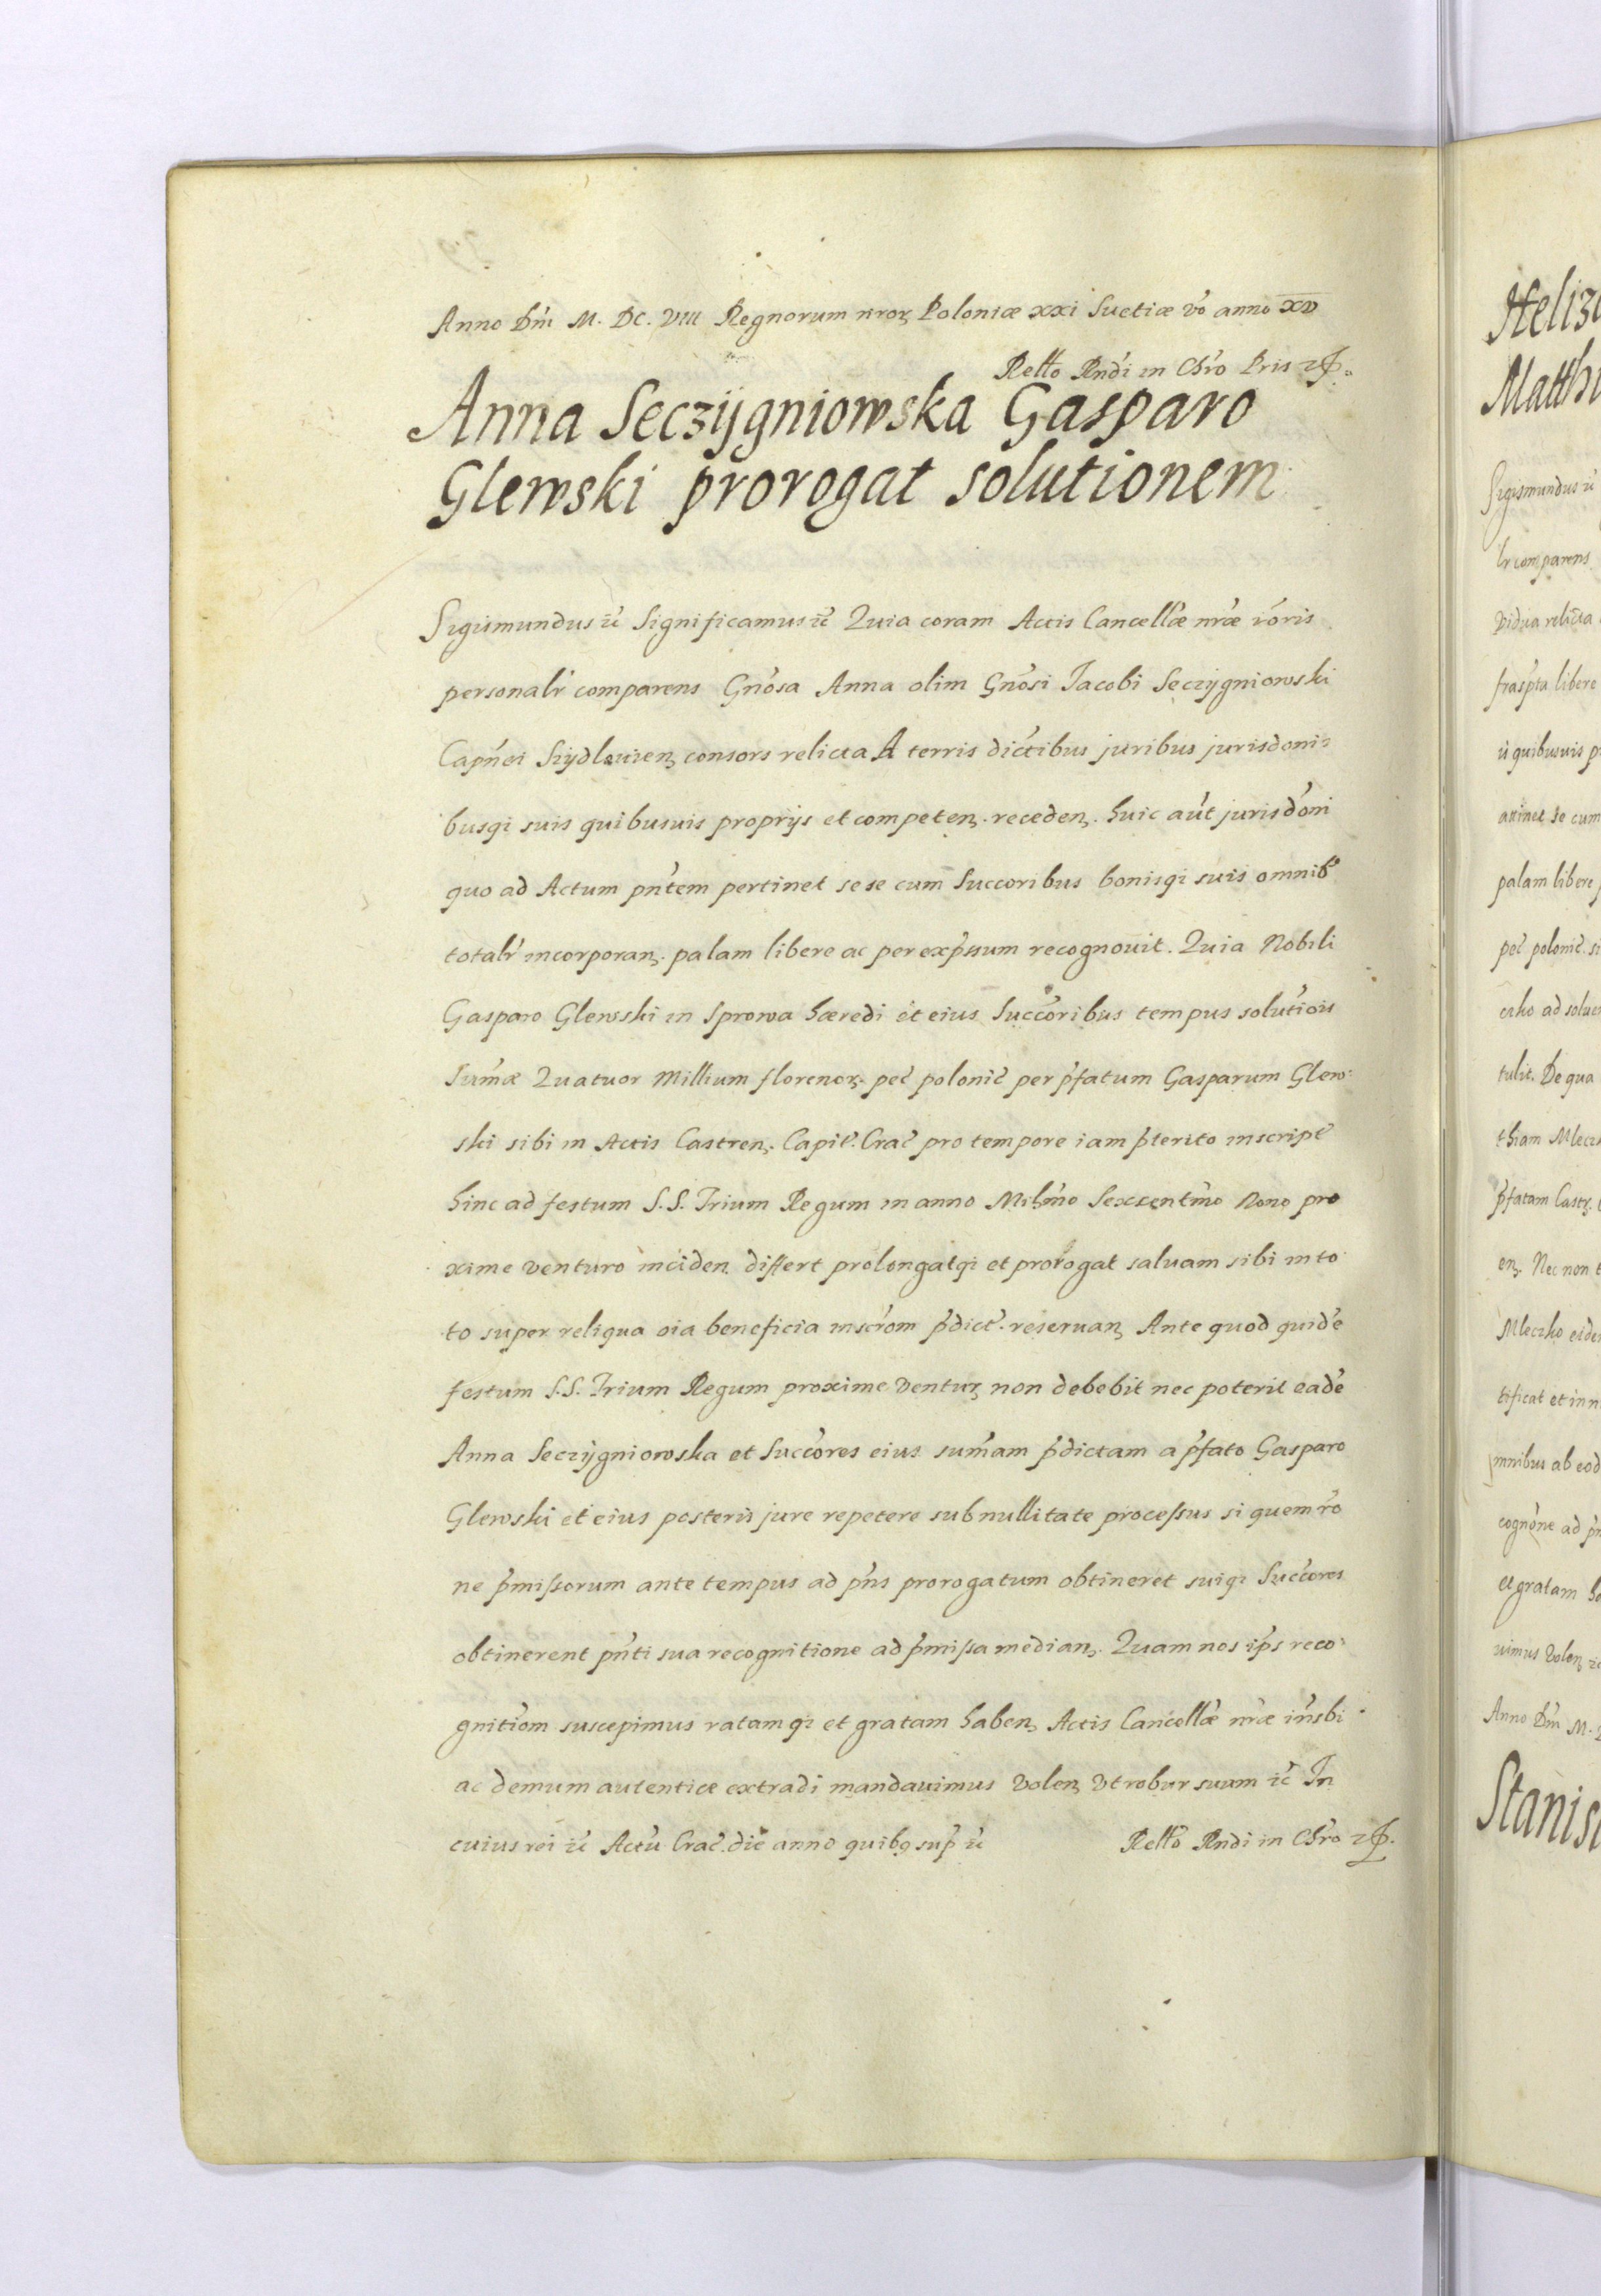 Anno Dni M. DC. VIII Regnorum nroꝝ Poloniæ xxi Suetiæ vo anno XV
Rello Rndi in Chro Pris
Anna Seczÿgniowska Gasparo
Glewski prorogat solutionem
Sigismundus ꝛc Significamus ꝛc Quia coram Actis Cancellæ nræ
personalr comparens Gnosa Anna olim Gnosi Jacobi Seczygniowski
Capnei consors relicta A terris dictibus juribus jurisdoni:
busqꝫ suis quibusuis proprijs et competenꝫ. recedenꝫ. huic aut jurisdoni
quo ad Actum pntem pertinet sese cum Succoribus bonisqꝫ suis omnib
totalr incorporanꝫ. palam libere ac per expssum recognouit. Quia Nobili
Gasparo Glewski in Sprowa hæredi et eius Succoribus tempus solutiois
Sumæ Quatuor Millium florenoꝝ. pec polonic per pfatum Gasparum Glew:
ski sibi in Actis Castrenꝫ. Capit. Crac pro tempore iam pterito inscript
hinc ad festum S.S. Trium Regum in anno Millmo Sexcentmo Nono pro
xime venturo inciden differt prolongatqꝫ et prorogat saluam sibi in to
to super reliqua oia beneficia inscrom pdict. reseruanꝫ Ante quod quide
festum S.S. Trium Regum proxime venturꝫ non debebit nec poterit eade
Anna Seczÿgniowska et Succores eius sumam pdictam a pfato Gasparo
Glewski et eius posteris jure repetere sub nullitate processus si quem ro
ne pmissorum ante tempus ad pns prorogatum obtineret suiqꝫ Succores
obtinerent pnti sua recognitione ad pmissa medianꝫ. Quam nos ips reco:
gnitiom suscepimus ratamqꝫ et gratam habenꝫ Actis Cancellæ nræ insbi
ac demum autentice extradi mandauimus volenꝫ vt robur suum ꝛc In
cuius rei ꝛc Actu Crac. die anno quibꝫ sup ꝛc Rello Rndi in Chro
Heliz
Matthi
Sigismundus ꝛc
lr comparens
vidua relicta
libere
quibusuis
attinet se cum
palam libere
pec polonic.
ad
tulit. De qua
Mlecz
pfatam
enꝫ. Nec non
Mleczko
tificat et in
mnibus ab eod
cognone ad
et gratam
uimus volenꝫ
Anno Dni M.
Stanis